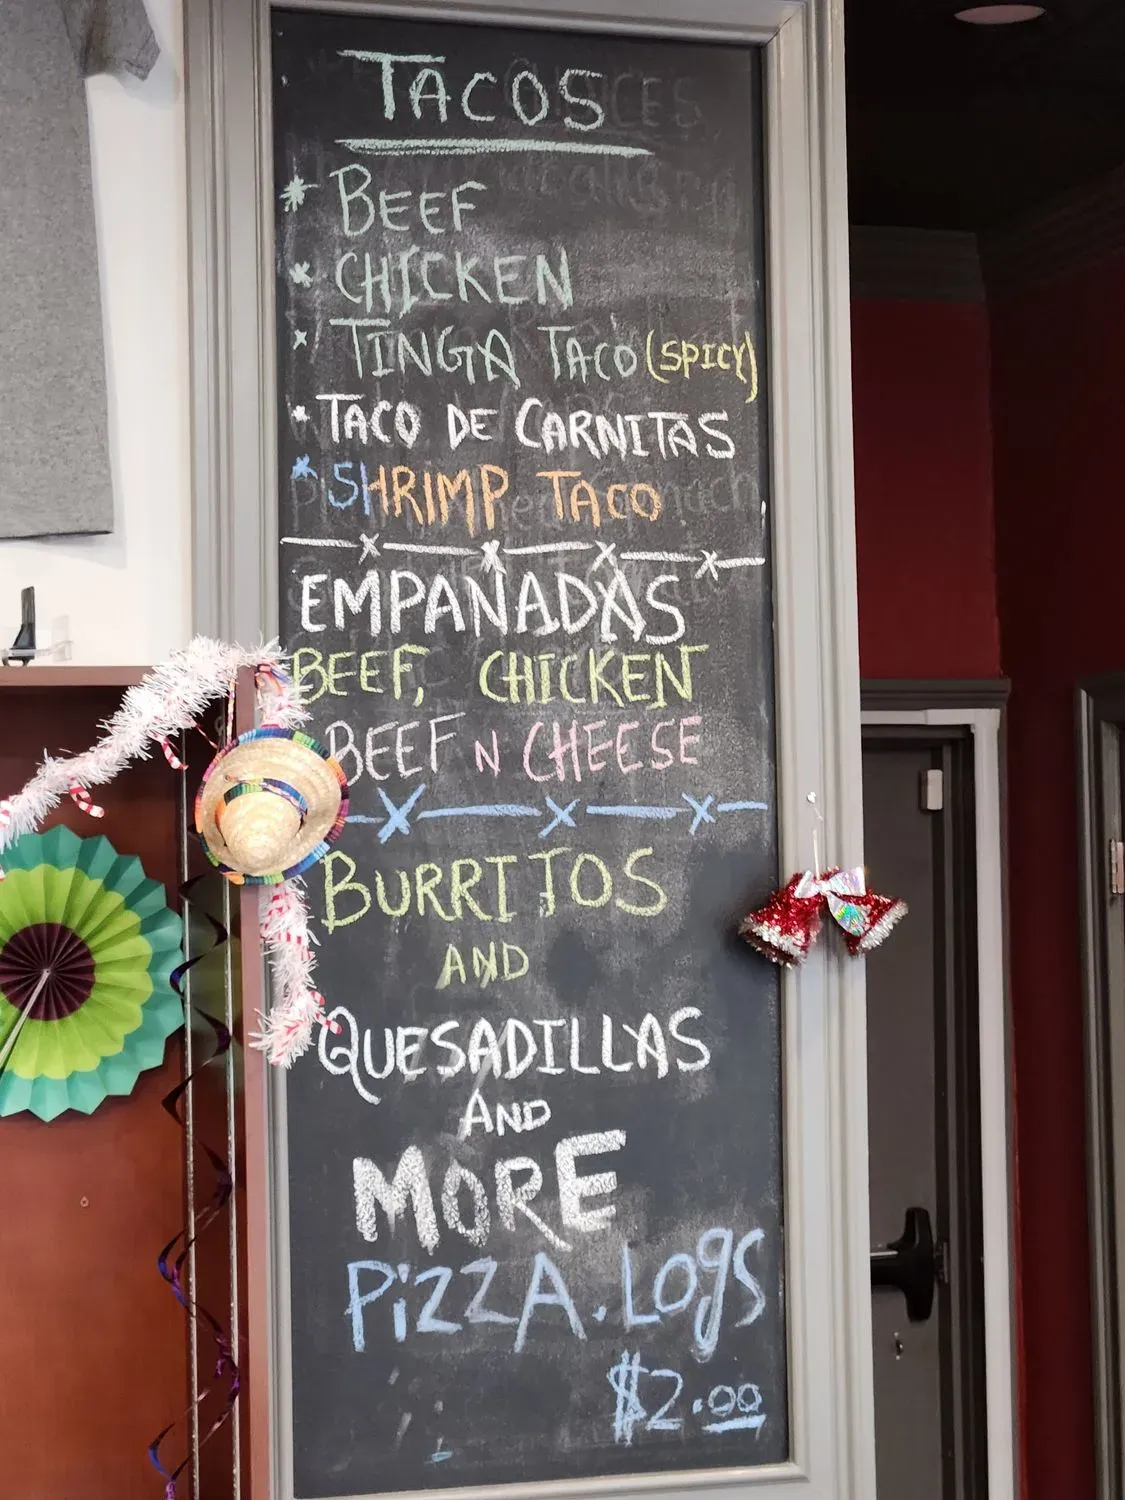 TACOS
* BEEF
* CHICKEN
* TINGA TACO (SPICY)
* TACO DE CARNITAS
* SHRIMP TACO
EMPANADAS
BEEF, CHICKEN
BEEF N CHEESE
BURRITOS
AND
QUESADILLAS
AND
MORE
PiZZA.LOgS
$2.00